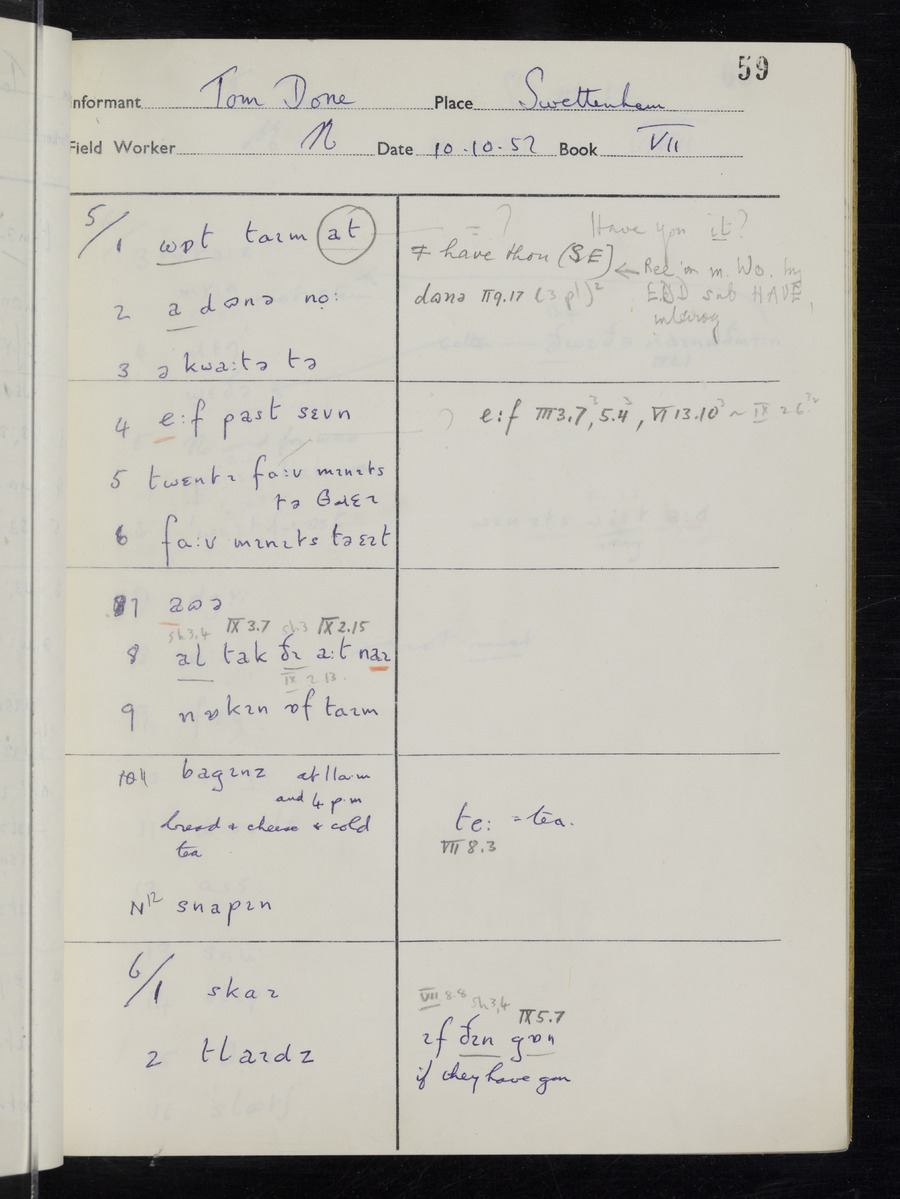 59
Informant Tom Done Place Swettenham
Field Worker N Date 10.10.52 Book VII
5/1 wɒt taɪm at
= ? Have you it?
≠ have thou (SE)
← Rec in m. Wo. by
EDD sub HAVE,
interrog
2 a dɷnə nọ:
dɷnə VI 9.17 (3 pl)²
3 ə kwa:tə tə
4 e:f past sɛvn
e:f VII 3.7³, 5.4³, VI 13.10³ ~ IX 2.6
5 twɛntɪ fa:v mɪnɪts
tə θɹɛɪ
6 fa:v mɪnɪts tə ɛɪt
7 aɷə
sh 3,4 IX 3.7 sh.3 IX 2.15
8 al tak ðɪ a:t naɪ
IX 2 13.
9 nɒkɪn ɒf taɪm
10 bagɪnz at 11 a.m
and 4 p.m
bread & cheese & cold
tea
te: = tea.
VII 8.3
N12 snapɪn
6/1 skaɪ
2 tlaɪdz
VII 8.8 sh 3,4 IX 5.7
ɪf ðɪn gɒn
if they have gon